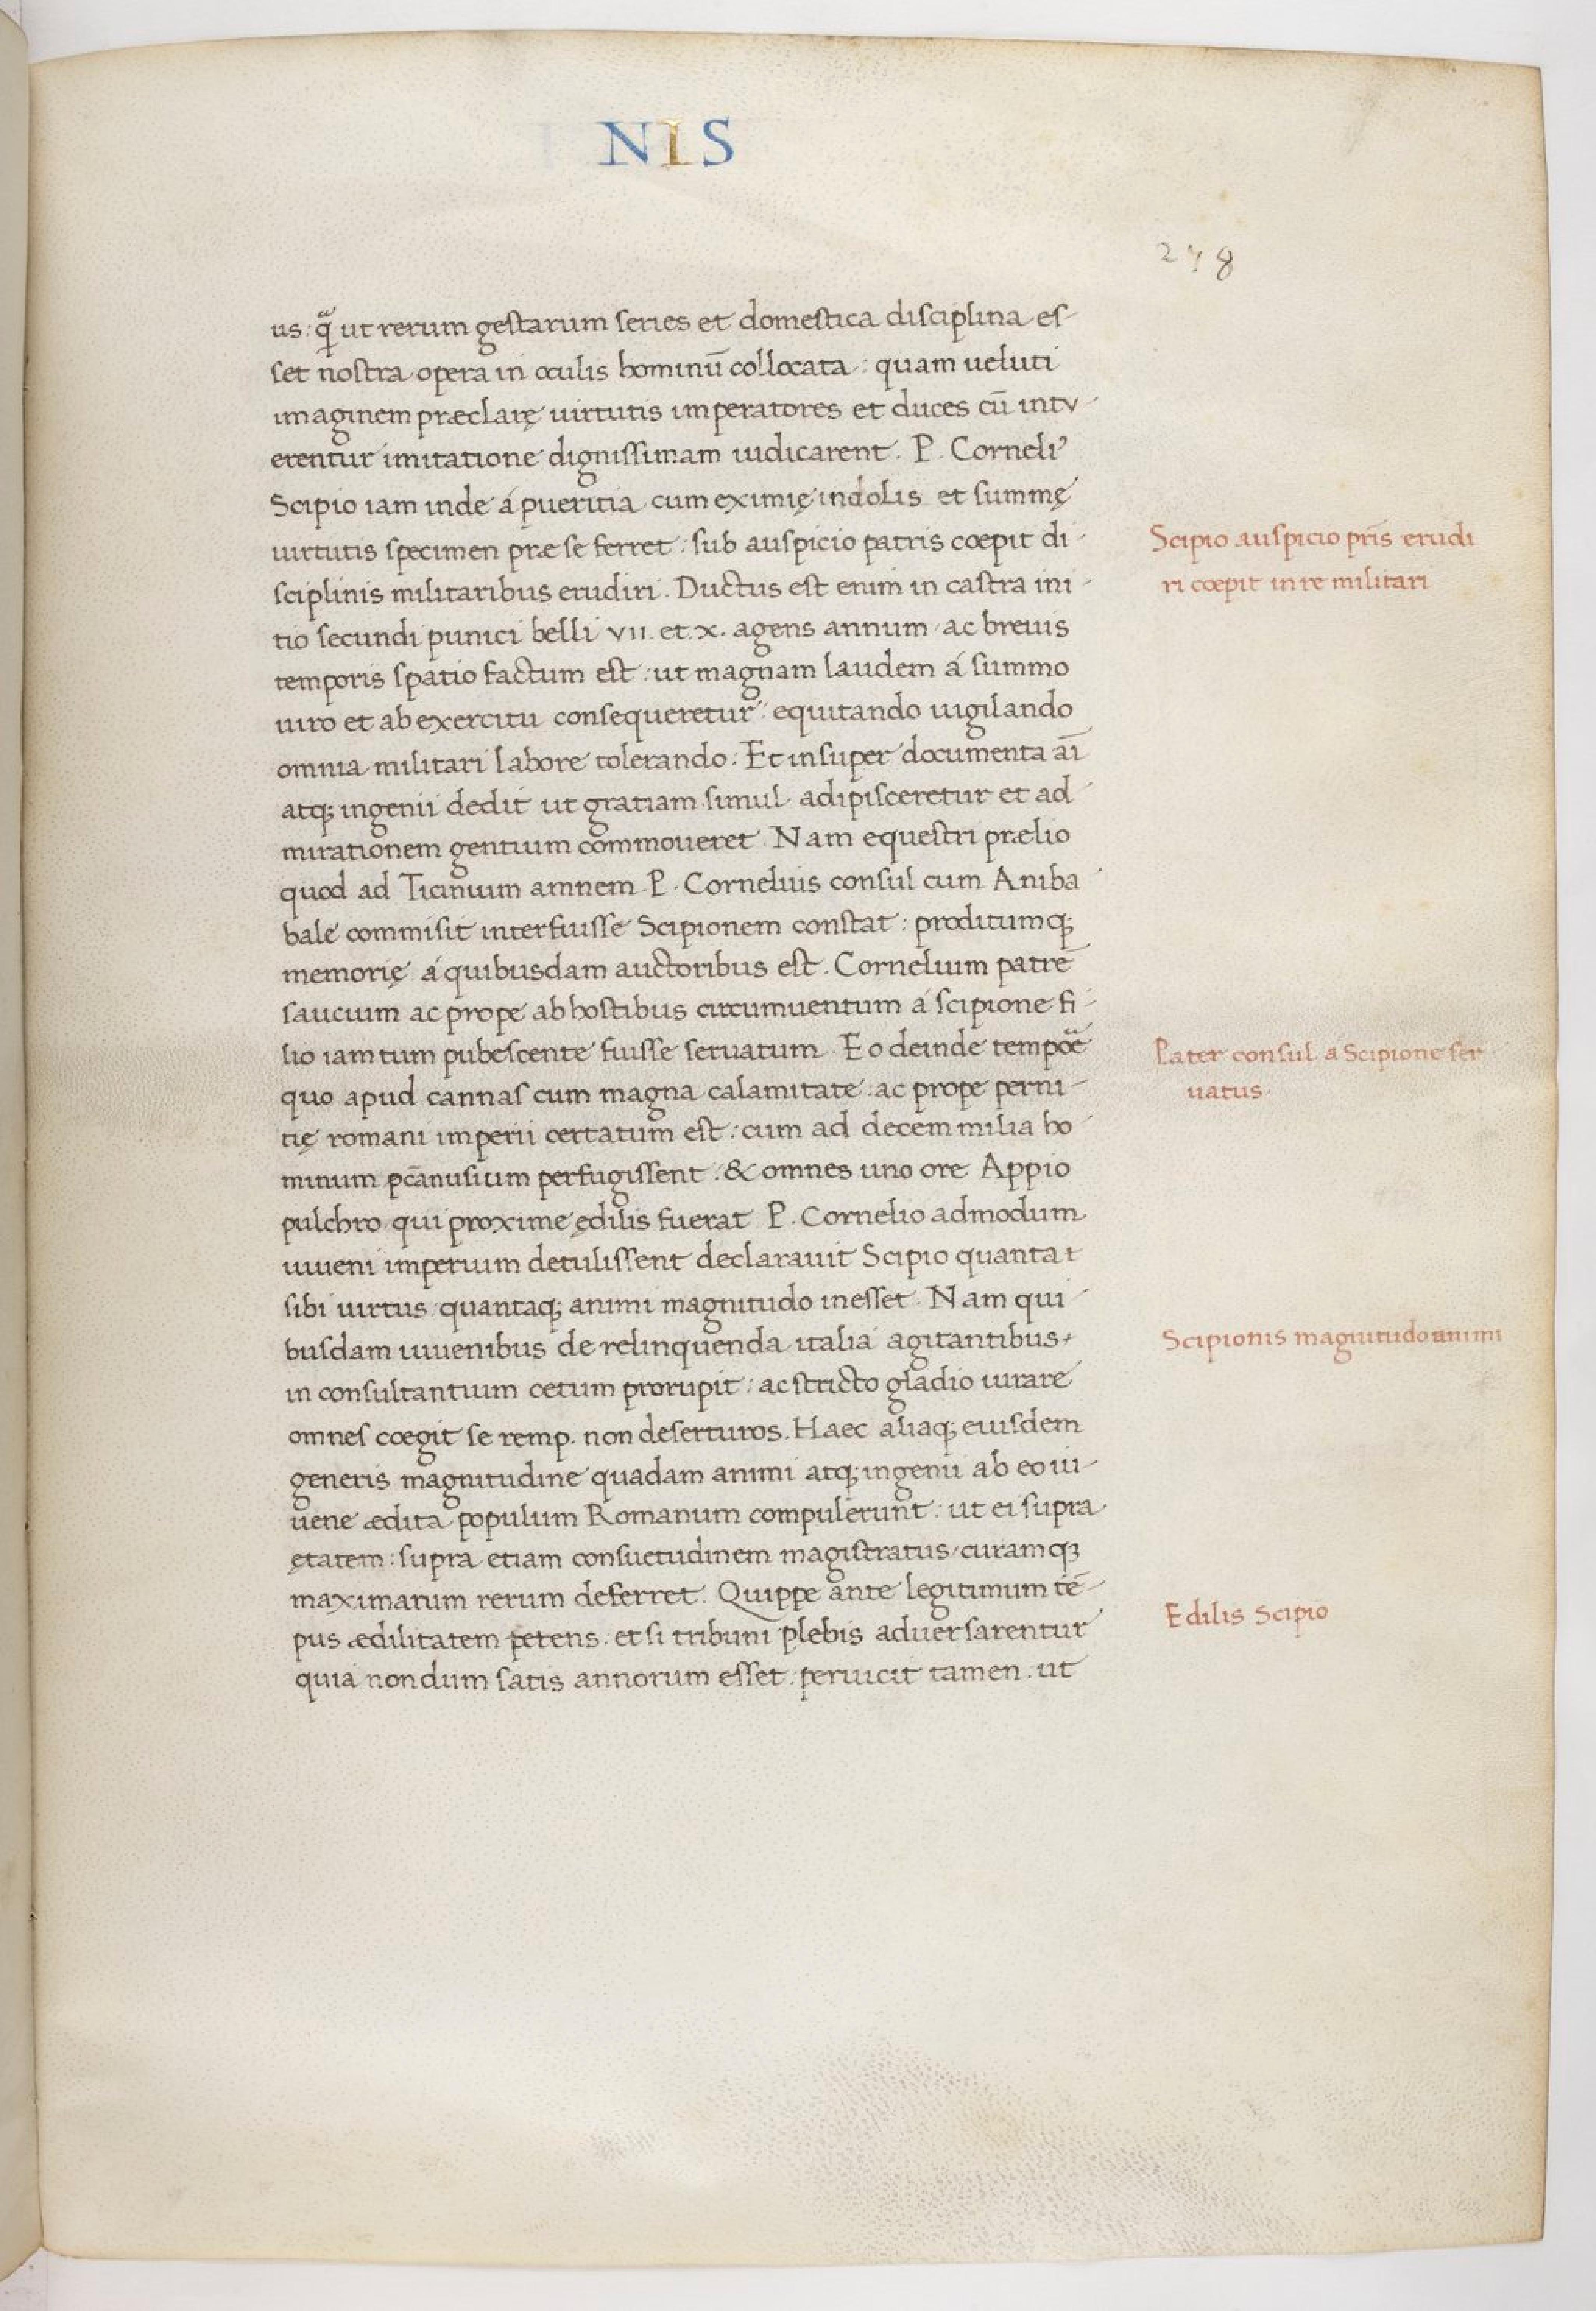 NIS
248
us: qᷓ ut rerum gestarum series et domestica disciplina es-
set nostra opera in oculis hominū collocata: quam ueluti
imaginem præclarę uirtutis imperatores et duces cū intv-
erentur imitatione dignissimam iudicarent. P. Corneliꝰ
Scipio iam inde á pueritia cum eximię indolis et summę
uirtutis specimen præ se ferret: sub auspicio patris coepit di-
sciplinis militaribus erudiri. Ductus est enim in castra ini-
tio secundi punici belli vii. et. x. agens annum ac breuis
temporis spatio factum est: ut magnam laudem á summo
uiro et ab exercitu consequeretur: equitando uigilando
omnia militari labore tolerando: Et insuper documenta aī
atq; ingenii dedit ut gratiam simul adipisceretur et ad-
mirationem gentium commoueret. Nam equestri prælio
quod ad Ticinium amnem P. Cornelius consul cum Aniba-
bale commisit interfuisse Scipionem constat: proditumq;
memorię á quibusdam auctoribus est. Cornelium patrē
saucium ac prope ab hostibus circumuentum á scipione fi-
lio iam tum pubescente fuisse seruatum. Eo deinde
quo apud cannas cum magna calamitate: ac prope perni-
tię romani imperii certatum est: cum ad decem milia ho-
minum perfugissent: & omnes uno ore Appio
pulchro qui proxime ędilis fuerat P. Cornelio admodum
iuueni imperium detulissent declarauit Scipio quanta t
sibi uirtus quantaq; animi magnitudo inesset. Nam qui-
busdam iuuenibus de relinquenda italia agitantibus,
in consultantium cetum prorupit: ac stricto gladio iurare
omnes coegit se remp. non deserturos. Haec aliaq; eiusdem
generis magnitudine quadam animi atq; ingenii ab eo iu-
uene ædita populum Romanum compulerunt: ut ei supra
ętatem: supra etiam consuetudinem magistratus, curamqꝫ
maximarum rerum deferret. Quippe ante legitimum tē-
pus ædilitatem petens. et si tribuni plebis aduersarentur
quia nondum satis annorum esset. peruicit tamen. ut
Scipio auspicio pr̄is erudi
ri coepit in re militari
Pater consul a Scipione ser-
uatus.
Scipionis magnitudo animi
Edilis Scipio